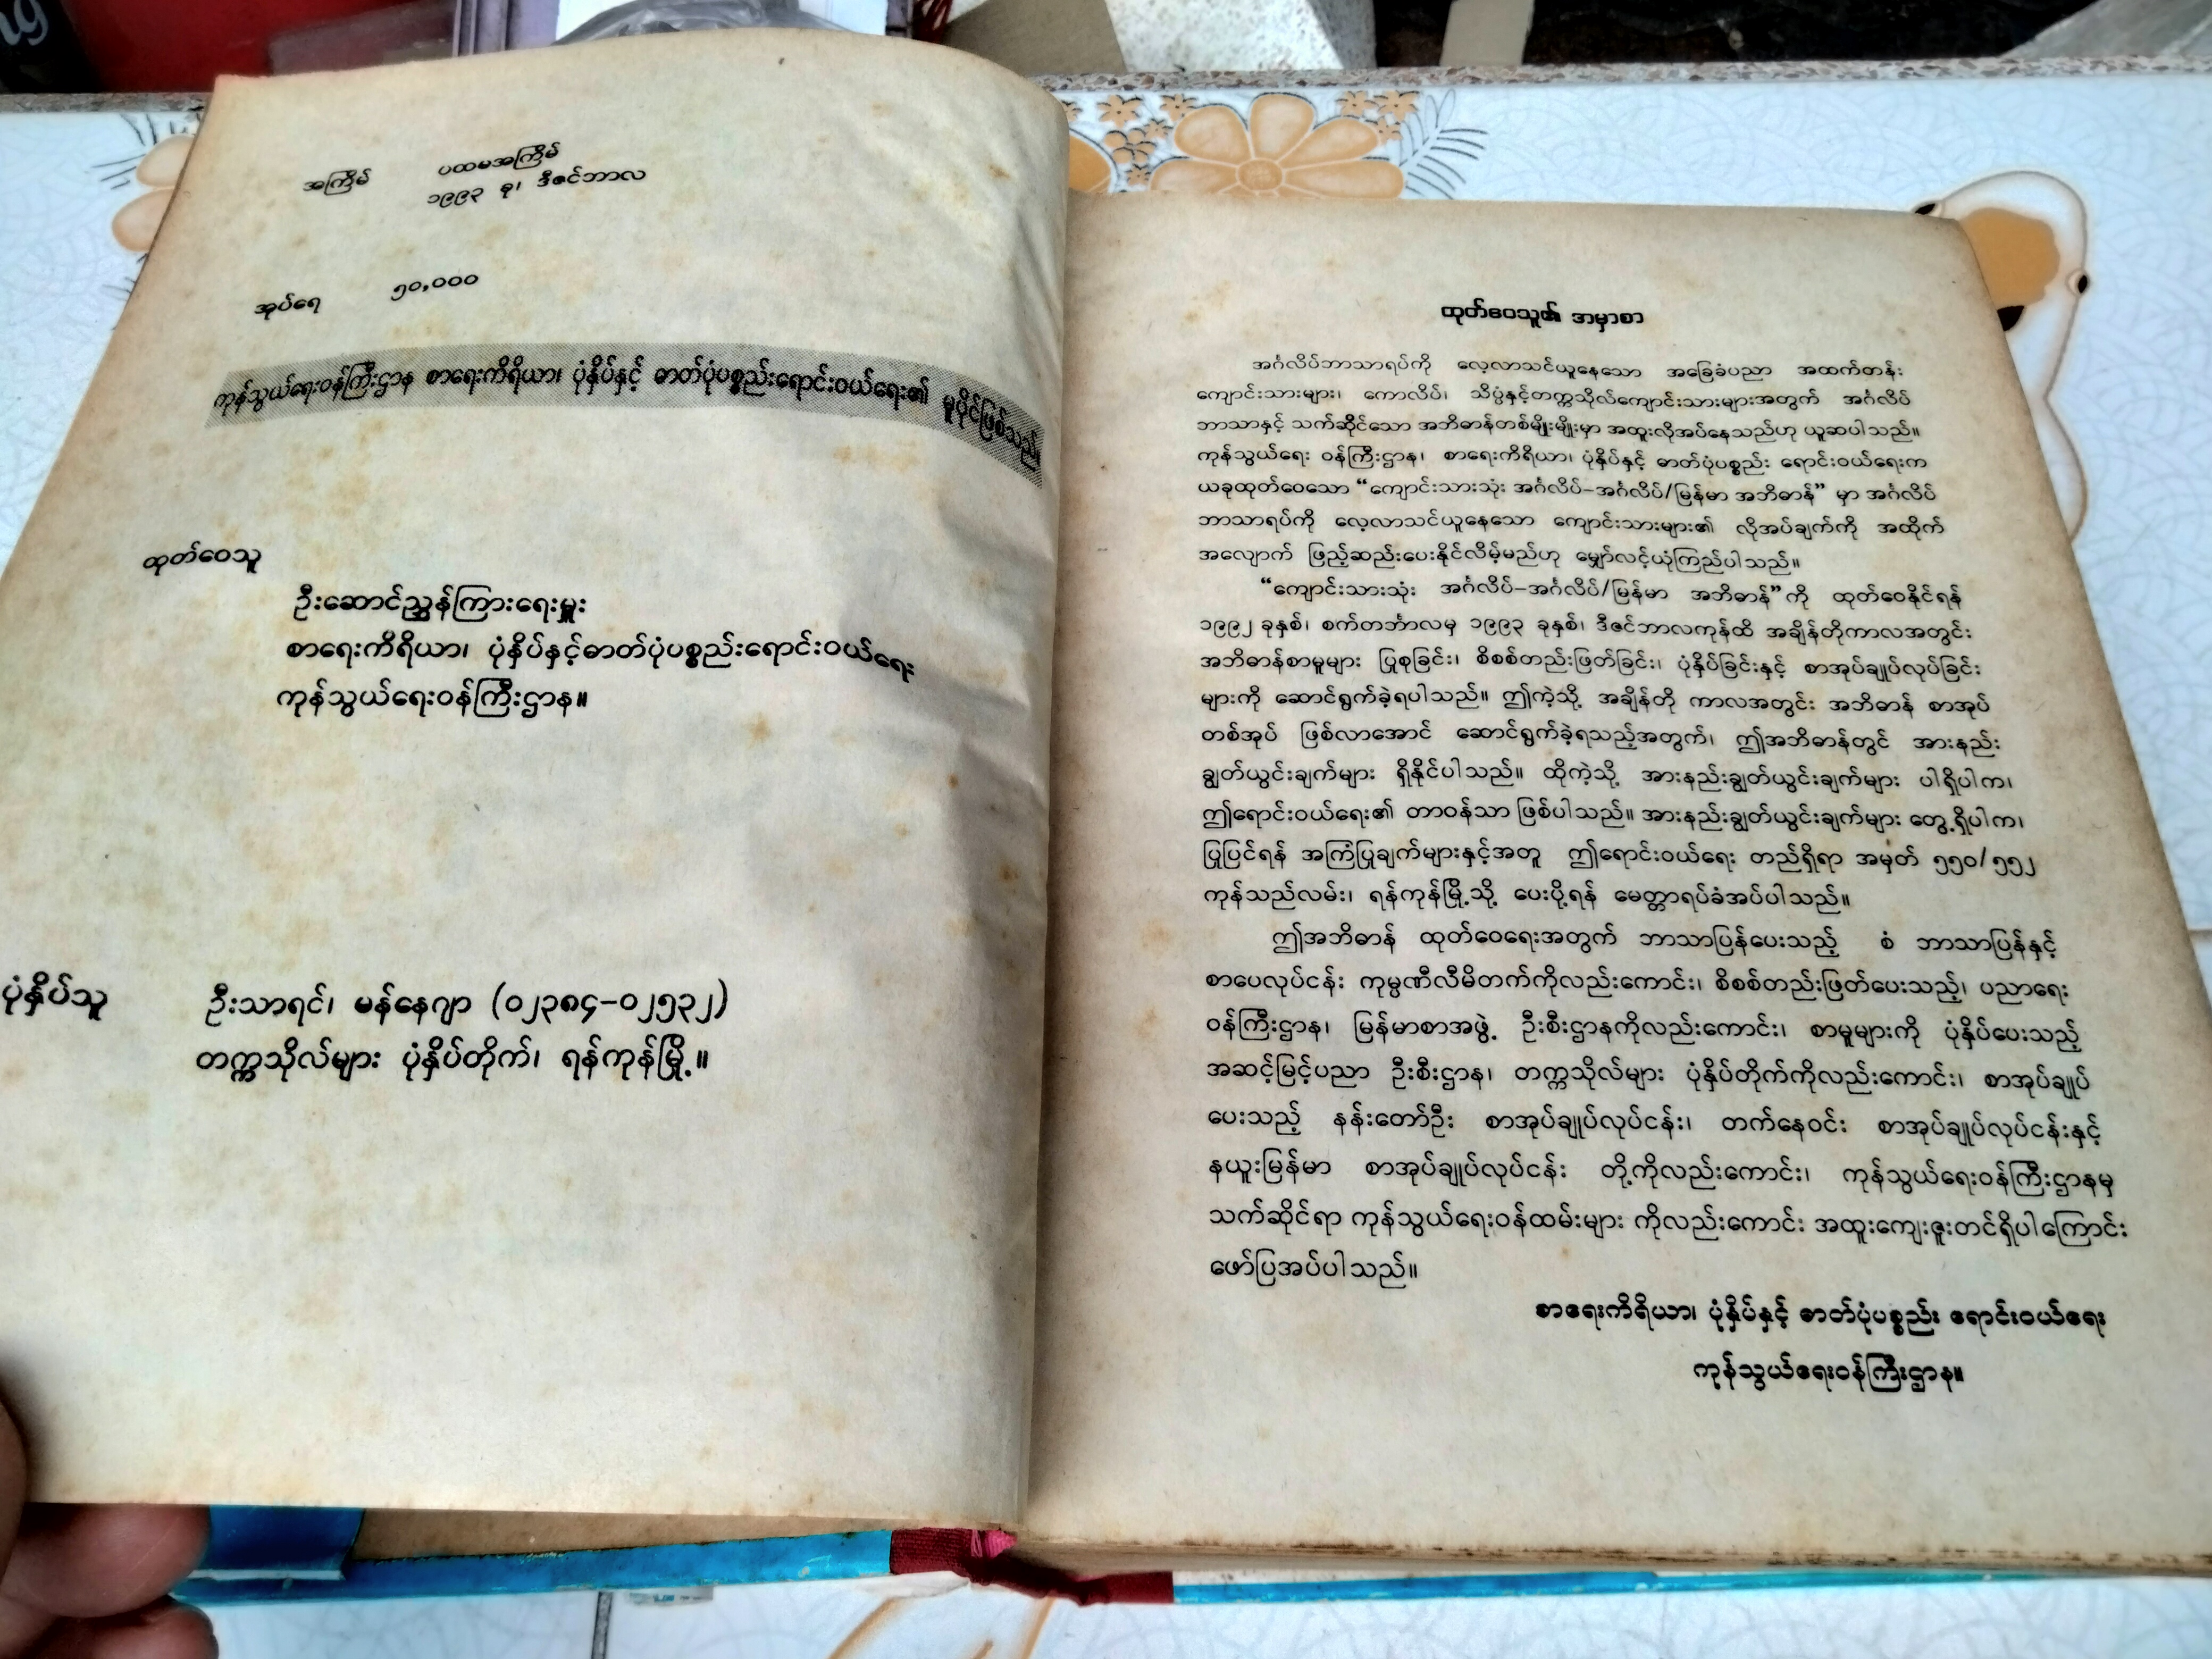 အကြိမ် ပထမအကြိမ်
၁၉၉၃ ခု၊ ဒီဇင်ဘာလ
အုပ်ရေ ၅၀,၀၀၀
ကုန်သွယ်ရေးဝန်ကြီးဌာန စာရေးကိရိယာ၊ ပုံနှိပ်နှင့် ဓာတ်ပုံပစ္စည်းရောင်းဝယ်ရေး၏ မူပိုင်ဖြစ်သည်။
ထုတ်ဝေသူ
ဦးဆောင်ညွှန်ကြားရေးမှူး
စာရေးကိရိယာ၊ ပုံနှိပ်နှင့်ဓာတ်ပုံပစ္စည်းရောင်းဝယ်ရေး
ကုန်သွယ်ရေးဝန်ကြီးဌာန။
ပုံနှိပ်သူ ဦးသာရင်၊ မန်နေဂျာ (၀၂၃၈၄–၀၂၅၃၂)
တက္ကသိုလ်များ ပုံနှိပ်တိုက်၊ ရန်ကုန်မြို့။
ထုတ်ဝေသူ၏ အမှာစာ
အင်္ဂလိပ်ဘာသာရပ်ကို လေ့လာသင်ယူနေသော အခြေခံပညာ အထက်တန်း
ကျောင်းသားများ၊ ကောလိပ်၊ သိပ္ပံနှင့်တက္ကသိုလ်ကျောင်းသားများအတွက် အင်္ဂလိပ်
ဘာသာနှင့် သက်ဆိုင်သော အဘိဓာန်တစ်မျိုးမျိုးမှာ အထူးလိုအပ်နေသည်ဟု ယူဆပါသည်။
ကုန်သွယ်ရေး ဝန်ကြီးဌာန၊ စာရေးကိရိယာ၊ ပုံနှိပ်နှင့် ဓာတ်ပုံပစ္စည်း ရောင်းဝယ်ရေးက
ယခုထုတ်ဝေသော “ကျောင်းသားသုံး အင်္ဂလိပ်–အင်္ဂလိပ်/မြန်မာ အဘိဓာန်” မှာ အင်္ဂလိပ်
ဘာသာရပ်ကို လေ့လာသင်ယူနေသော ကျောင်းသားများ၏ လိုအပ်ချက်ကို အထိုက်
အလျောက် ဖြည့်ဆည်းပေးနိုင်လိမ့်မည်ဟု မျှော်လင့်ယုံကြည်ပါသည်။
“ကျောင်းသားသုံး အင်္ဂလိပ်–အင်္ဂလိပ်/မြန်မာ အဘိဓာန်”ကို ထုတ်ဝေနိုင်ရန်
၁၉၉၂ ခုနှစ်၊ စက်တင်္ဘာလမှ ၁၉၉၃ ခုနှစ်၊ ဒီဇင်ဘာလကုန်ထိ အချိန်တိုကာလအတွင်း
အဘိဓာန်စာမူများ ပြုစုခြင်း၊ စိစစ်တည်းဖြတ်ခြင်း၊ ပုံနှိပ်ခြင်းနှင့် စာအုပ်ချုပ်လုပ်ခြင်း
များကို ဆောင်ရွက်ခဲ့ရပါသည်။ ဤကဲ့သို့ အချိန်တို ကာလအတွင်း အဘိဓာန် စာအုပ်
တစ်အုပ် ဖြစ်လာအောင် ဆောင်ရွက်ခဲ့ရသည့်အတွက်၊ ဤအဘိဓာန်တွင် အားနည်း
ချွတ်ယွင်းချက်များ ရှိနိုင်ပါသည်။ ထိုကဲ့သို့ အားနည်းချွတ်ယွင်းချက်များ ပါရှိပါက၊
ဤရောင်းဝယ်ရေး၏ တာဝန်သာ ဖြစ်ပါသည်။ အားနည်းချွတ်ယွင်းချက်များ တွေ့ရှိပါက၊
ပြုပြင်ရန် အကြံပြုချက်များနှင့်အတူ ဤရောင်းဝယ်ရေး တည်ရှိရာ အမှတ် ၅၅၀/၅၅၂
ကုန်သည်လမ်း၊ ရန်ကုန်မြို့သို့ ပေးပို့ရန် မေတ္တာရပ်ခံအပ်ပါသည်။
ဤအဘိဓာန် ထုတ်ဝေရေးအတွက် ဘာသာပြန်ပေးသည့် စံ ဘာသာပြန်နှင့်
စာပေလုပ်ငန်း ကုမ္ပဏီလီမိတက်ကိုလည်းကောင်း၊ စိစစ်တည်းဖြတ်ပေးသည့်၊ ပညာရေး
ဝန်ကြီးဌာန၊ မြန်မာစာအဖွဲ့ ဦးစီးဌာနကိုလည်းကောင်း၊ စာမူများကို ပုံနှိပ်ပေးသည့်
အဆင့်မြင့်ပညာ ဦးစီးဌာန၊ တက္ကသိုလ်များ ပုံနှိပ်တိုက်ကိုလည်းကောင်း၊ စာအုပ်ချုပ်
ပေးသည့် နန်းတော်ဦး စာအုပ်ချုပ်လုပ်ငန်း၊ တက်နေဝင်း စာအုပ်ချုပ်လုပ်ငန်းနှင့်
နယူးမြန်မာ စာအုပ်ချုပ်လုပ်ငန်း တို့ကိုလည်းကောင်း၊ ကုန်သွယ်ရေးဝန်ကြီးဌာနမှ
သက်ဆိုင်ရာ ကုန်သွယ်ရေးဝန်ထမ်းများ ကိုလည်းကောင်း အထူးကျေးဇူးတင်ရှိပါကြောင်း
ဖော်ပြအပ်ပါသည်။
စာရေးကိရိယာ၊ ပုံနှိပ်နှင့် ဓာတ်ပုံပစ္စည်း ရောင်းဝယ်ရေး
ကုန်သွယ်ရေးဝန်ကြီးဌာန။